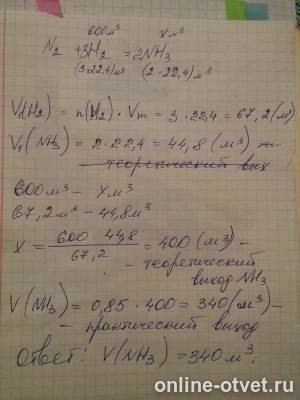 600м³ xм³
N₂ + 3H₂ = 2NH₃
(3·22,4)м³ (2·22,4)м³
V₁(H₂) = n(H₂)·Vm = 3·22,4 = 67,2(м³)
V₁(NH₃) = 2·22,4 = 44,8(м³)
теоретический вых
600м³ – xм³
67,2м³ – 44,8м³
x = 600·44,8 / 67,2 = 400(м³) –
– теоретический
выход NH₃
V(NH₃) = 0,85·400 = 340(м³) –
– практический выход
Ответ: V(NH₃) = 340м³.
online-otvet.ru